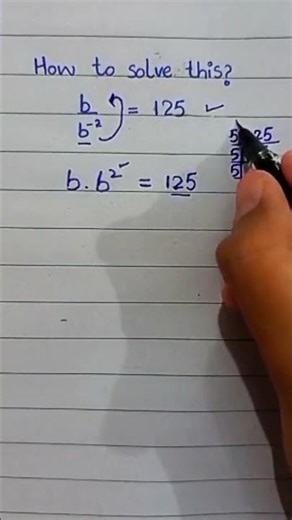 How to solve this?
b/b⁻² = 125 ✓
5 25
b · b² = 125
5
5